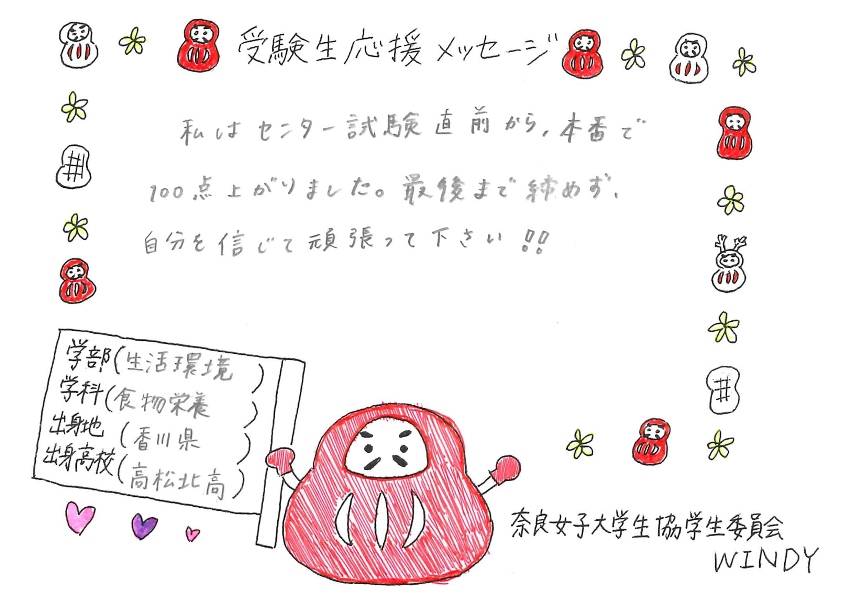 受験生応援メッセージ
私はセンター試験直前から、本番で
100点上がりました。最後まで締めず、
自分を信じて頑張って下さい!!
学部(生活環境)
学科(食物栄養)
出身地(香川県)
出身高校(高松北高)
奈良女子大学生協学生委員会
WINDY